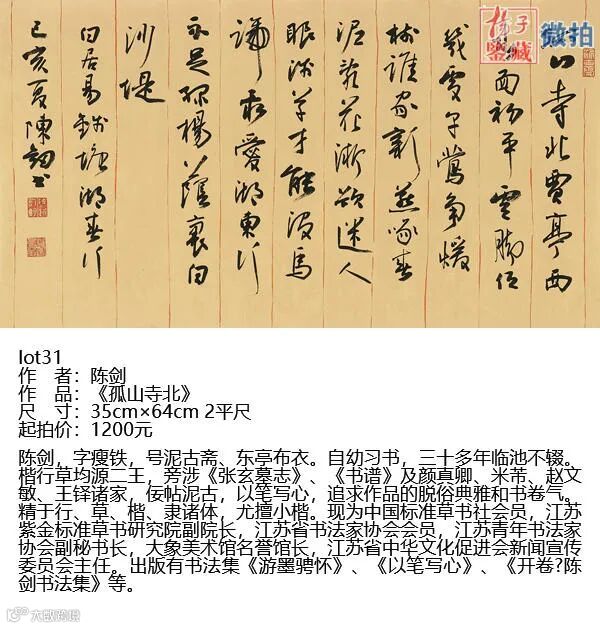 山寺北賈亭西
面初平雲脚低
幾處早鶯争暖
樹誰家新燕啄春
泥亂花漸欲迷人
眼淺草才能没馬
蹄最愛湖東行
不足緑楊蔭裏白
沙堤
白居易錢塘湖春行
己亥夏陳劍書
揚子鑒藏 微拍
lot31
作 者：陈剑
作 品：《孤山寺北》
尺 寸：35cm×64cm 2平尺
起拍价：1200元
陈剑，字瘦铁，号泥古斋、东亭布衣。自幼习书，三十多年临池不辍。
楷行草均源二王，旁涉《张玄墓志》、《书谱》及颜真卿、米芾、赵文
敏、王铎诸家，佞帖泥古，以笔写心，追求作品的脱俗典雅和书卷气。
精于行、草、楷、隶诸体，尤擅小楷。现为中国标准草书社会员，江苏
紫金标准草书研究院副院长，江苏省书法家协会会员，江苏青年书法家
协会副秘书长，大象美术馆名誉馆长，江苏省中华文化促进会新闻宣传
委员会主任。出版有书法集《游墨骋怀》、《以笔写心》、《开卷?陈
剑书法集》等。
大数跨境